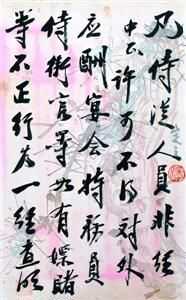 凡侍從人員非經
中正許可不得對外
应酬宴会特務員
侍衛官等如有嫖賭
等不正行为一经查明